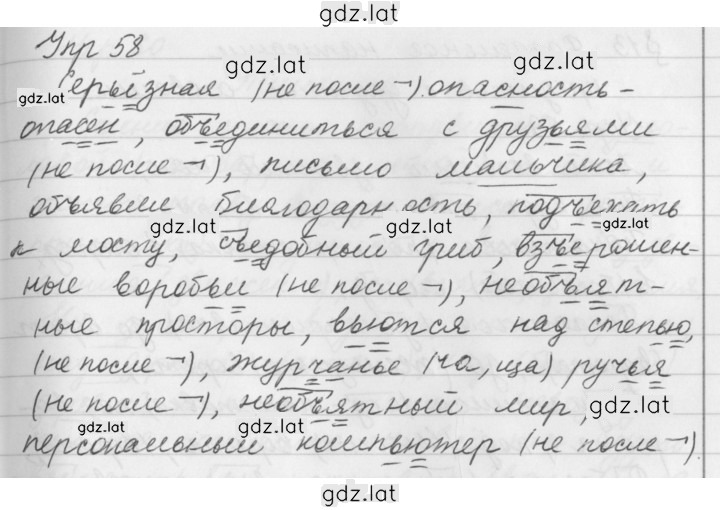 gdz.lat
Упр 58
gdz.lat gdz.lat
Серьёзная (не после ¬). опасность-
gdz.lat
опасен, объединиться с друзьями
(не после ¬), письмо мальчика,
объявили благодарность, подъехать
gdz.lat gdz.lat gdz.lat
к мосту, съедобный гриб, взъерошен-
ные воробьи (не после ¬), необъят-
ные просторы, вьются над степью,
(не после ¬), журчанье (ча, ща) ручья
(не после ¬), необъятный мир, gdz.lat
gdz.lat gdz.lat
персональный компьютер (не после ¬).
gdz.lat